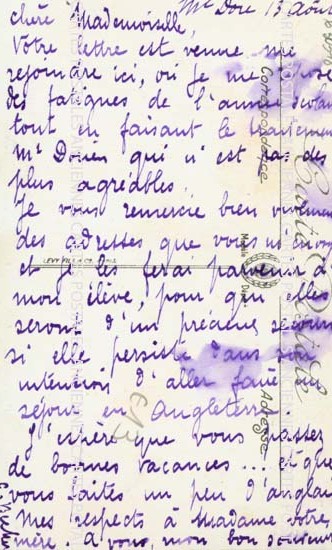 Mt Dore 13 Août
chère Mademoiselle,
Votre lettre est venue me
rejoindre ici, où je me repose
des fatigues de l'année
tout en faisant le traitement
Mt Dorien qui n'est pas des
plus agréables.
Je vous remercie bien
des adresses que vous
et je les ferai parvenir à
mon élève, pour qui elles
seront d'un précieux secours
si elle persiste dans son
intention d'aller faire un
séjour en Angleterre.
J'espère que vous passez
de bonnes vacances... et que
vous faites un peu d'anglais
Mes respects à Madame votre
mère. A vous, mon bon souvenir
Correspondance
Carte Postale
Adresse